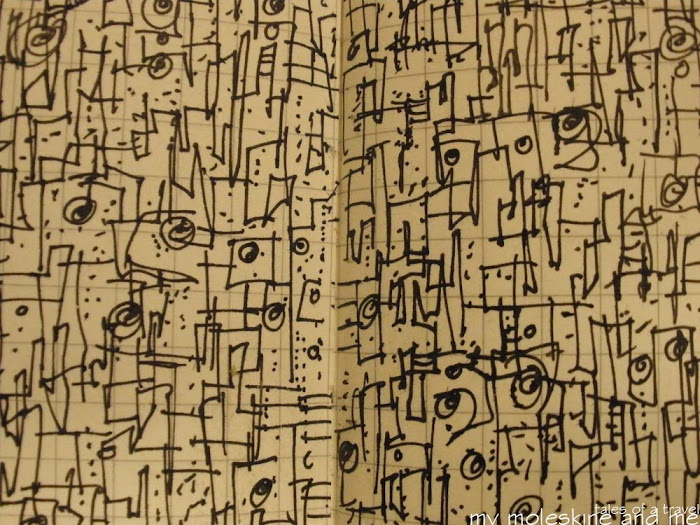 tales of a travel
my moleskine and me